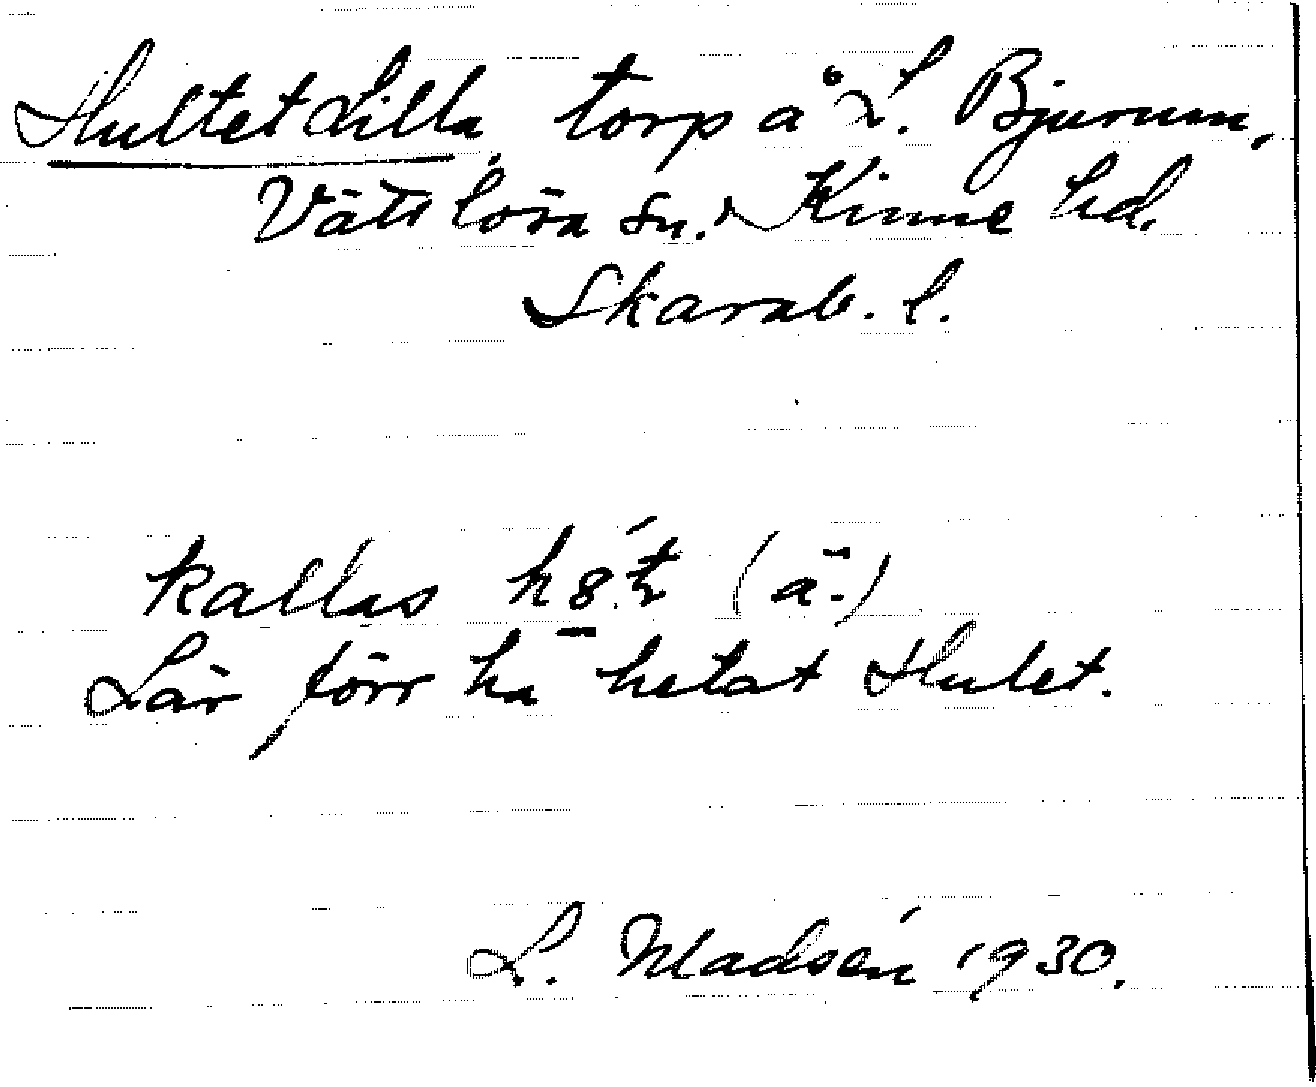 Hultet Lilla, torp å L. Bjurum,
Vättlösa sn. Kinne hd.
Skarab. l.
kallas (ä.)
Lär förr ha hetat Hulet.
L. Madsén 1930.